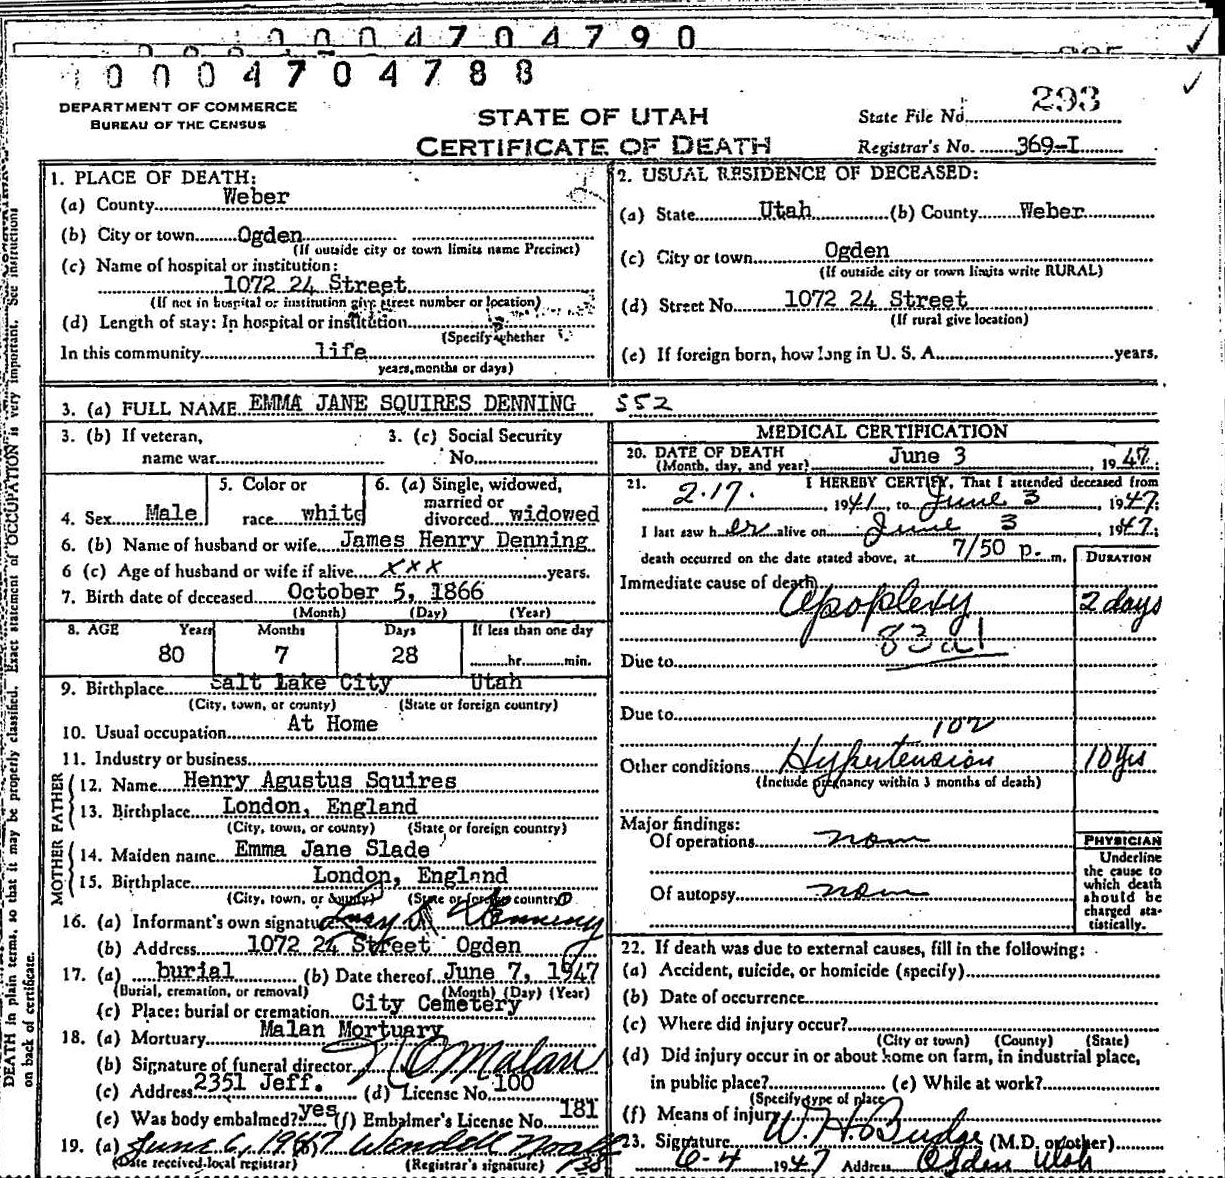 0004704790
0004704788
DEPARTMENT OF COMMERCE
BUREAU OF THE CENSUS
STATE OF UTAH
CERTIFICATE OF DEATH
State File No. 293
Registrar's No. 369-I
1. PLACE OF DEATH:
(a) County Weber
(b) City or town Ogden
(If outside city or town limits name Precinct)
(c) Name of hospital or institution:
1072 24 Street
(If not in hospital or institution give street number or location)
(d) Length of stay: In hospital or institution
(Specify whether
In this community life
years, months or days)
2. USUAL RESIDENCE OF DECEASED:
(a) State Utah (b) County Weber
(c) City or town Ogden
(If outside city or town limits write RURAL)
(d) Street No. 1072 24 Street
(If rural give location)
(e) If foreign born, how long in U. S. A. years.
3. (a) FULL NAME EMMA JANE SQUIRES DENNING 552
3. (b) If veteran, name war
3. (c) Social Security No.
4. Sex Male
5. Color or race white
6. (a) Single, widowed, married or divorced widowed
6. (b) Name of husband or wife James Henry Denning
6 (c) Age of husband or wife if alive xxx years.
7. Birth date of deceased October 5, 1866
(Month) (Day) (Year)
8. AGE Years Months Days If less than one day
80 7 28 hr. min.
9. Birthplace Salt Lake City Utah
(City, town, or county) (State or foreign country)
10. Usual occupation At Home
11. Industry or business
FATHER
12. Name Henry Agustus Squires
13. Birthplace London, England
(City, town, or county) (State or foreign country)
MOTHER
14. Maiden name Emma Jane Slade
15. Birthplace London, England
(City, town, or county) (State or foreign country)
16. (a) Informant's own signature Denning
(b) Address 1072 24 Street Ogden
17. (a) burial (b) Date thereof June 7, 1947
(Burial, cremation, or removal) (Month) (Day) (Year)
(c) Place: burial or cremation City Cemetery
18. (a) Mortuary Malan Mortuary
(b) Signature of funeral director Malan
(c) Address 2351 Jeff. (d) License No. 100
(e) Was body embalmed? yes (f) Embalmer's License No. 181
19. (a) June 6, 1947 Wendell
(Date received local registrar) (Registrar's signature)
MEDICAL CERTIFICATION
20. DATE OF DEATH June 3, 1947;
(Month, day, and year)
21. I HEREBY CERTIFY, That I attended deceased from
2.17. , 1941, to June 3, 1947;
I last saw her alive on June 3 1947;
death occurred on the date stated above, at 7/50 p. m.
DURATION
Immediate cause of death Apoplexy 2 days
83a1
Due to
Due to
102
Other conditions Hypertension 10 yrs
(Include pregnancy within 3 months of death)
Major findings:
Of operations none
Of autopsy none
PHYSICIAN
Underline
the cause to
which death
should be
charged sta-
tistically.
22. If death was due to external causes, fill in the following:
(a) Accident, suicide, or homicide (specify)
(b) Date of occurrence
(c) Where did injury occur?
(City or town) (County) (State)
(d) Did injury occur in or about home on farm, in industrial place,
in public place? (e) While at work?
(Specify type of place
(f) Means of injury
23. Signature W. H. Budge (M.D. or other)
6-4 1947 Address Ogden Utah
DEATH in plain terms, so that it may be properly classified. Exact statement of OCCUPATION is very important. See instructions
on back of certificate.